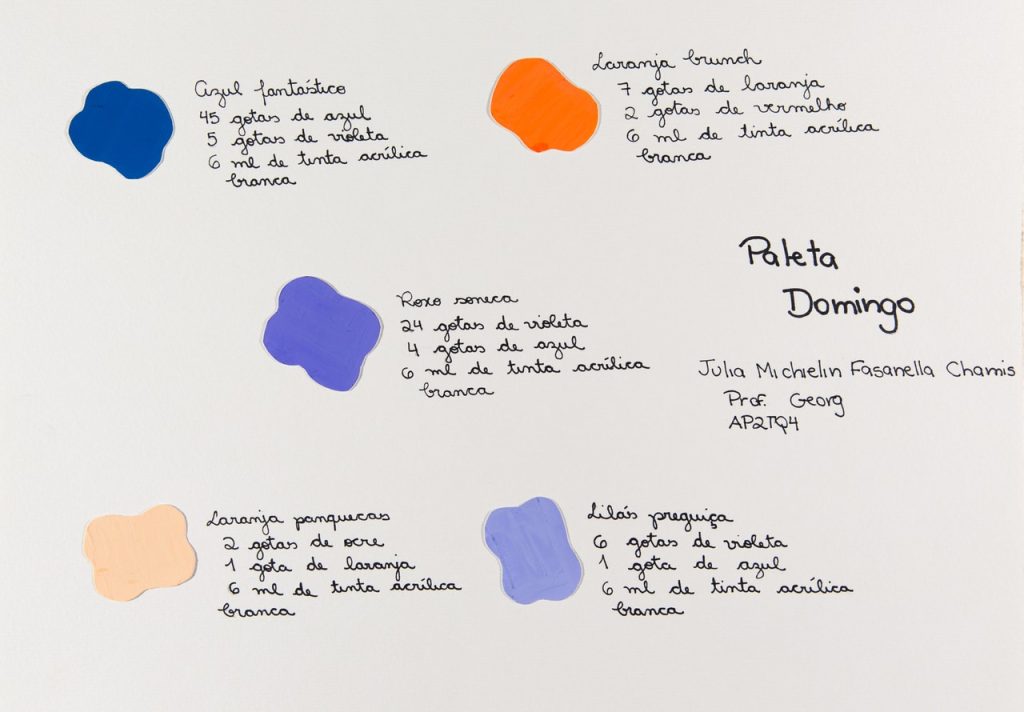 Azul fantástico
45 gotas de azul
5 gotas de violeta
6 ml de tinta acrílica
branca
Laranja brunch
7 gotas de laranja
2 gotas de vermelho
6 ml de tinta acrílica
branca
Paleta
Domingo
Julia Michielin Fasanella Chamis
Prof. Georg
AP2TQ4
Roxo soneca
24 gotas de violeta
4 gotas de azul
6 ml de tinta acrílica
branca
Laranja panquecas
2 gotas de ocre
1 gota de laranja
6 ml de tinta acrílica
branca
Lilás preguiça
6 gotas de violeta
1 gota de azul
6 ml de tinta acrílica
branca